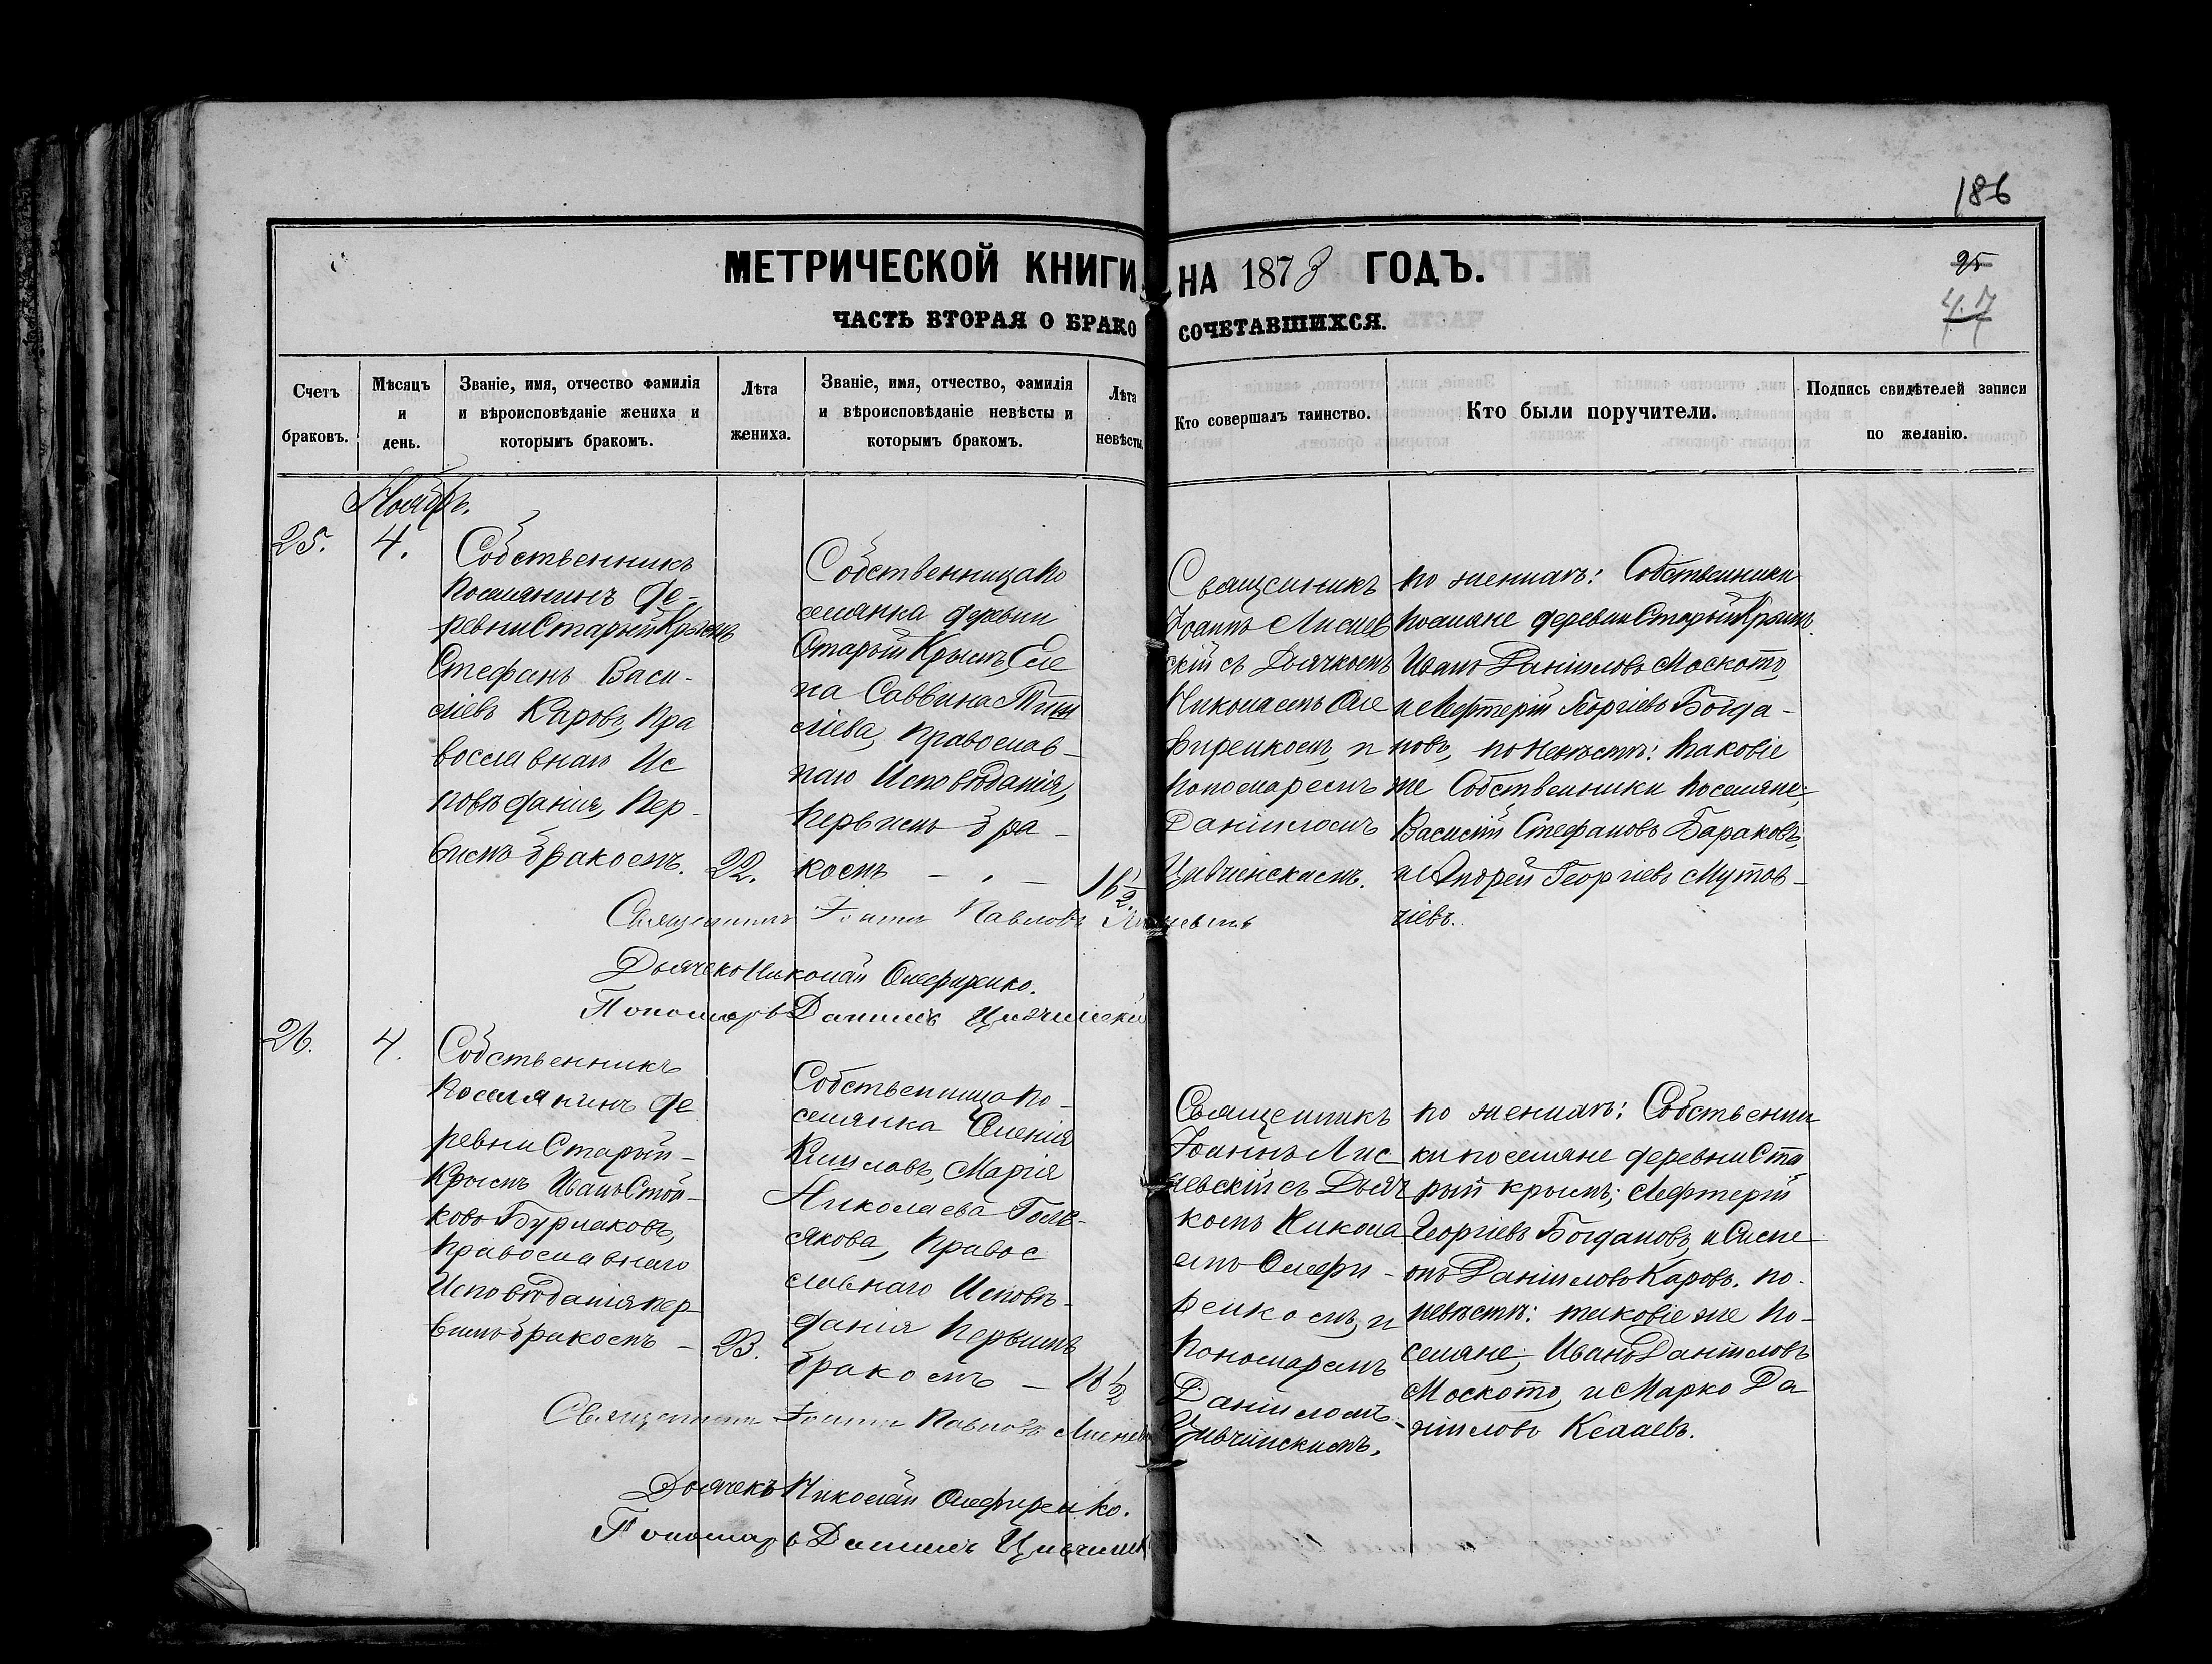 186
МЕТРИЧЕСКОЙ КНИГИ НА 1873 ГОДЪ.
25
47
ЧАСТЬ ВТОРАЯ О БРАКОСОЧЕТАВШИХСЯ.
Счетъ
браковъ.
Мѣсяцъ
и
день.
Званіе, имя, отчество фамилія
и вѣроисповѣданіе жениха и
которымъ бракомъ.
Лѣта
жениха.
Званіе, имя, отчество, фамилія
и вѣроисповѣданіе невѣсты и
которымъ бракомъ.
Лѣта
невѣсты.
Кто совершалъ таинство.
Кто были поручители.
Подпись свидѣтелей записи
по желанію.
Ноябрь.
25.
4.
Собственникъ
поселянинъ де-
ревни Старый Крымъ
Стефанъ Васи-
ліевъ Каровъ, Пра
вославнаго Ис
повѣданія, Пер-
вымъ бракомъ.
22.
Собственница По
селянка деревни
Старый Крымъ, Еле
на Саввина
ліева, православ-
наго Исповѣданія,
первымъ бра-
комъ — , —
16½.
Священникъ
Іоаннъ Лиснев
скій съ Дьячкомъ
Николаемъ Оле
фиренкомъ, и
пономаремъ
Даніиломъ
Цивчинскимъ.
по женихѣ: Собственники
поселяне деревни Старый Крымъ.
Иванъ Даніиловъ Москотъ,
и Лефтерій Георгіевъ Богда-
новъ, по невѣстѣ: таковіе
же Собственники поселяне;
Василій Стефановъ Бараковъ,
и Андрей Георгіевъ Мутав-
чіевъ.
Священникъ Іоаннъ Павловъ
Дьячекъ Николай Олефиренко.
Пономарь Даніилъ Цивчинскій
26.
4.
Собственникъ
поселянинъ де
ревни Старый-
Крымъ Иванъ Стой-
ковъ Бурлаковъ,
православнаго
Исповѣданія пер-
вымъ бракомъ —
23.
Собственница по-
селянка селенія
Кишловъ, Марія
Николаева Голе-
лякова, Правос
лавнаго Исповѣ-
данія первымъ
бракомъ —
18½
Священникъ
Іоаннъ Лис
невскій съ Дьяч
комъ Никола
емъ Олефи-
ренкомъ, и
пономаремъ
Даніиломъ-
Цивчинскимъ.
по женихѣ: Собственни
ки поселяне деревни Ста
рый крымъ; Лефтерій
Георгіевъ Богдановъ, и Симе
онъ Даніиловъ Каровъ. по-
невѣстѣ: таковіе же По-
селяне; Иванъ Даніиловъ
Москотъ, и Марко Да
ніиловъ Келаевъ.
Священникъ Іоаннъ Павловъ Лиснев
Дьячекъ Николай Олефиренко.
Пономарь Даніилъ Цивчинск